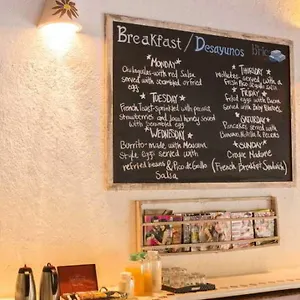 Breakfast / Desayunos
*MONDAY*
Chilaquiles with red Salsa
served with scrambled or fried
eggs
*TUESDAY*
French Toast - sprinkled with
strawberries and local honey served
with scrambled eggs
*WEDNESDAY*
Burrito - made with Mexican
Style eggs served with
refried beans & Pico de Gallo
Salsa
*THURSDAY*
served with a
Fresh Pico
*FRIDAY*
Fried eggs with Bacon
Served with
*SATURDAY*
Pancakes, served with
Banana, Nutella &
*SUNDAY*
Croque Madame
(French Breakfast Sandwich)